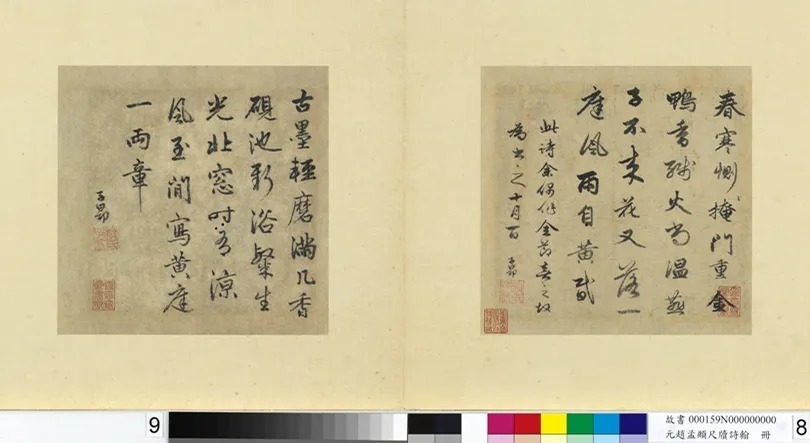 春寒惻〻掩門重金
鴨香殘火尚温燕
子不来花又落一
庭風雨自黄昏
此詩余偶作喜之故
為書之十月
子昂
古墨輕磨滿几香
硯池新浴粲生
光北窓時有凉
風至閒寫黄庭
一兩章
子昂
9
故書 000159N000000000
元趙孟頫尺牘詩翰 冊
8